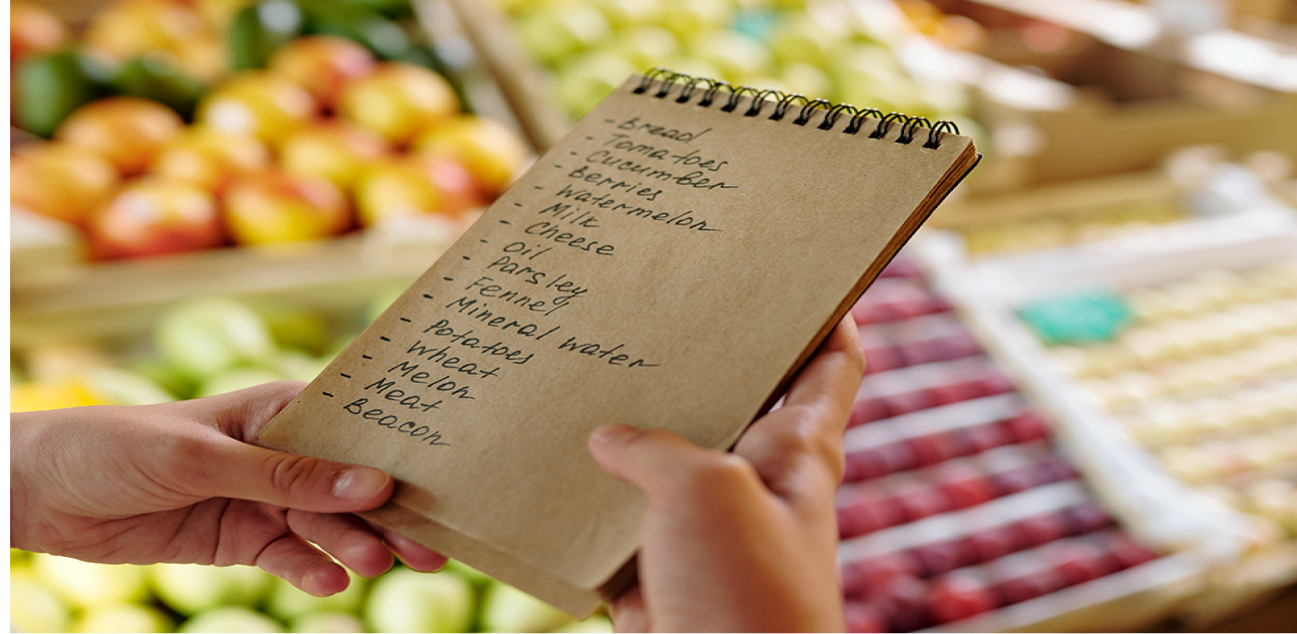 - Bread
- Tomatoes
- Cucumber
- Berries
- Watermelon
- Milk
- Cheese
- Oil
- Parsley
- Fennel
- Mineral water
- Potatoes
- Wheat
- Melon
- Meat
- Beacon